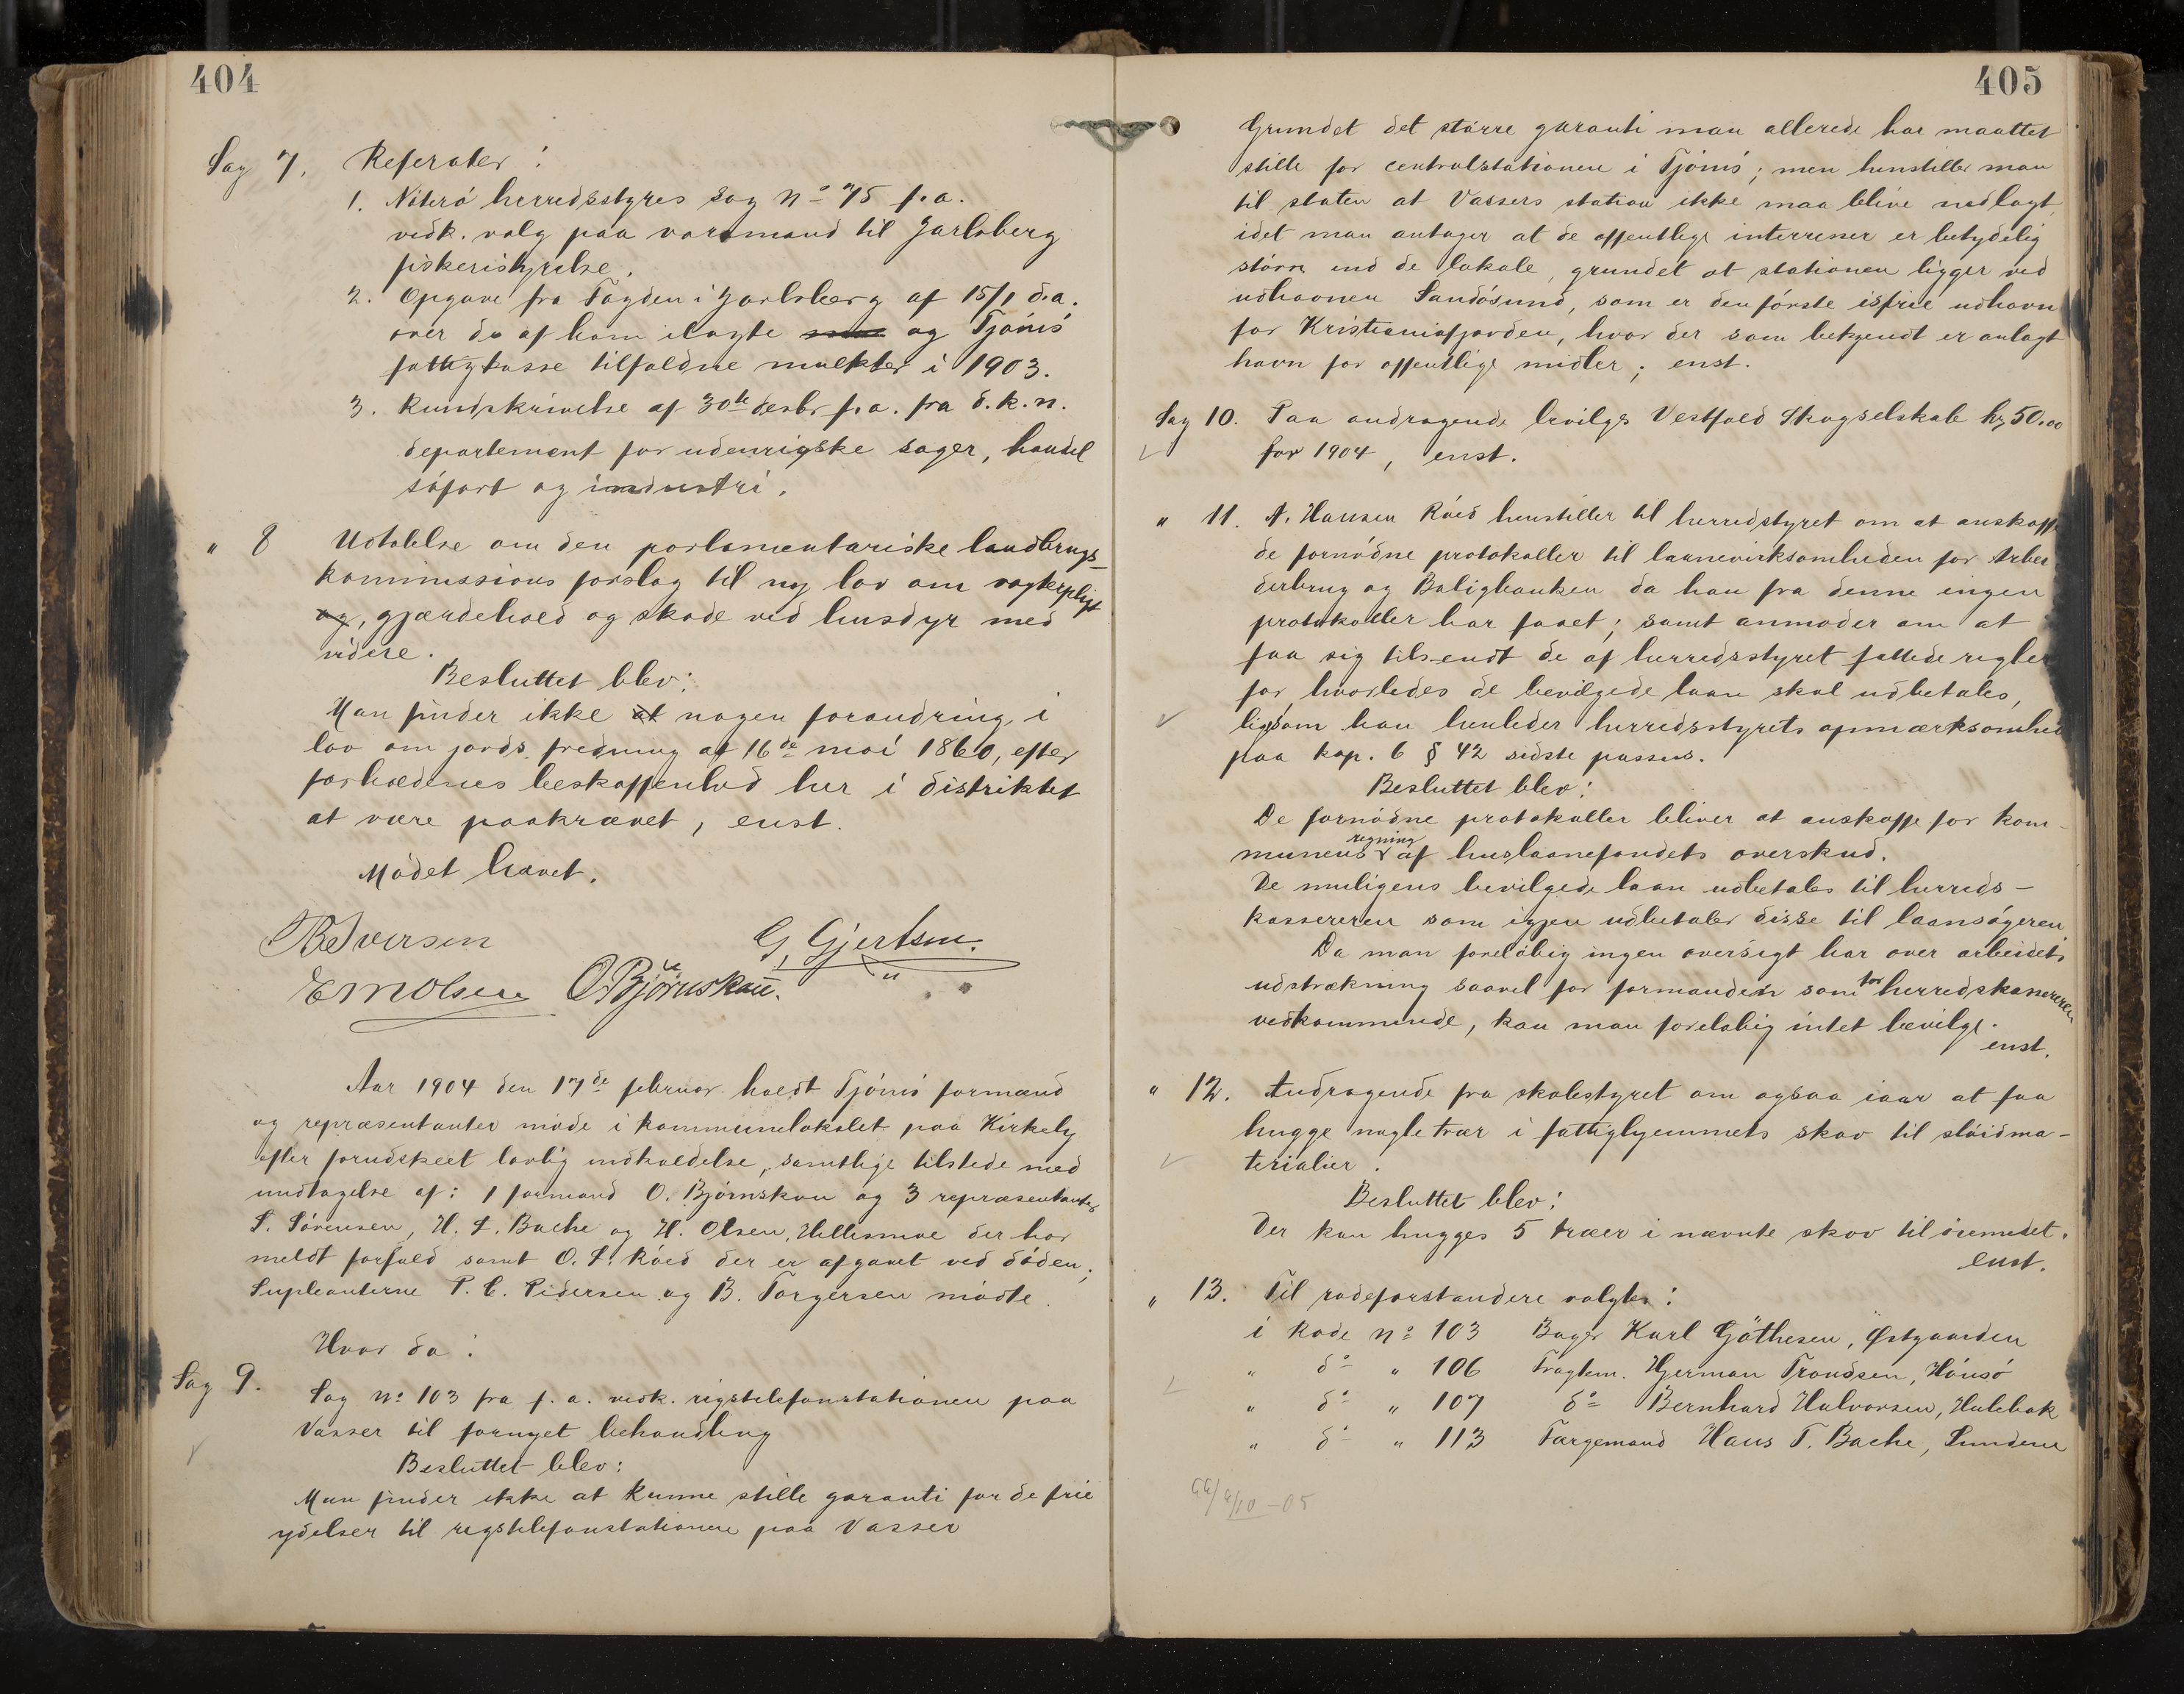 404
Sag 7. Referater:
1. Nøterø herredsstyres sag No 75 f.a.
vedk. valg paa varamand til Jarlsberg
fiskeristyrelse.
2. Opgave fra Fogden i Jarlsberg af 15/1 d.a.
over de af ham ilagte og Tjømø
fattigkasse tilfaldne mulkter i 1903.
3. Rundskrivelse af 30te desbr f.a. fra d.k.n.
departement for udenrigske sager, handel
søfart og industri.
" 8 Udtalelse om den parlamentariske landbrugs-
kommissions forslag til ny lov om vogterpligt
og, gjærdehold og skade ved husdyr med
videre.
Besluttet blev:
Man finder ikke at nogen forandring, i
lov om jords fredning af 16de mai 1860, efter
forholdenes beskaffenhed her i distriktet
at være paakrævet, enst.
Mødet hævet.
Iversen G. Gjertsen.
E M Olsen O. Bjørnskau.
Aar 1904 den 17de februar holdt Tjømø formænd
og repræsentanter møde i kommunelokalet paa Kirkely
efter forudskeet lovlig indkaldelse, samtlige tilstede med
undtagelse af: 1 formand O. Bjørnskau og 3 repræsentanter
S. Sørensen, H. L. Bache og H. Olsen, Hellesmoe der har
meldt forfald samt O. L. Røed der er afgaaet ved døden;
Supleanterne P. C. Pedersen og B. Torgersen mødte.
Hvor da:
Sag 9. Sag No 103 fra f.a. vedk. rigstelefonstationen paa
Vasser til fornyet behandling
Besluttet blev:
Man finder ikke at kunne stille garanti for de frie
ydelser til rigstelefonstationen paa Vasser
405
Grundet det større garanti man allerede har maattet
stille for centralstationen i Tjømø; men henstiller man
til staten at Vassers station ikke maa blive nedlagt,
idet man antager at de offentlige interresser er betydelig
større end de lokale, grundet at stationen ligger ved
udhavnen Sandøsund, som er den første isfrie udhavn
for Kristianiafjorden, hvor der som bekjendt er anlagt
havn for offentlige midler; enst.
Sag 10. Paa andragende bevilges Vestfold Skogselskab kr 50.00
for 1904, enst.
" 11. A. Hansen Røed henstiller til herredstyret om at anskaffe
de fornødne protokoller til laanevirksomheden for Arbei
derbrug og Boligbanken da han fra denne ingen
protokoller har faaet; samt anmoder om at
faa sig tilsendt de af herredsstyret fattede regler
for, hvorledes de bevilgede laan skal udbetales,
ligesom han henleder herredsstyrets opmærksomhed
paa kap. 6 § 42 sidste passus.
Besluttet blev:
De fornødne protokoller bliver at anskaffe for kom-
munens regning af huslaanefondets overskud.
De muligens bevilgede laan udbetales til herreds-
kassereren som igjen udbetaler disse til laansøgeren.
Da man foreløbig ingen oversigt har over arbeidets
udstrækning saavel for formanden som for herredskassereren
vedkommende, kan man foreløbig intet bevilge.
enst.
" 12. Andragende fra skolestyret om ogsaa iaar at faa
hugge nogle trær i fattighjemmets skov til sløidma-
terialier.
Besluttet blev:
Der kan hugges 5 træer i nævnte skov til øiemedet.
enst.
" 13. Til rodeforstandere valgtes:
i Rode No 103 Bager Karl Gøthesen, Østgaarden
" do " 106 Fragtem. Hjerman Trondsen, Hønsø
" do " 107 do Bernhard Halvorsen, Holebak
" do " 113 Færgemand Hans T. Bache, Sundene